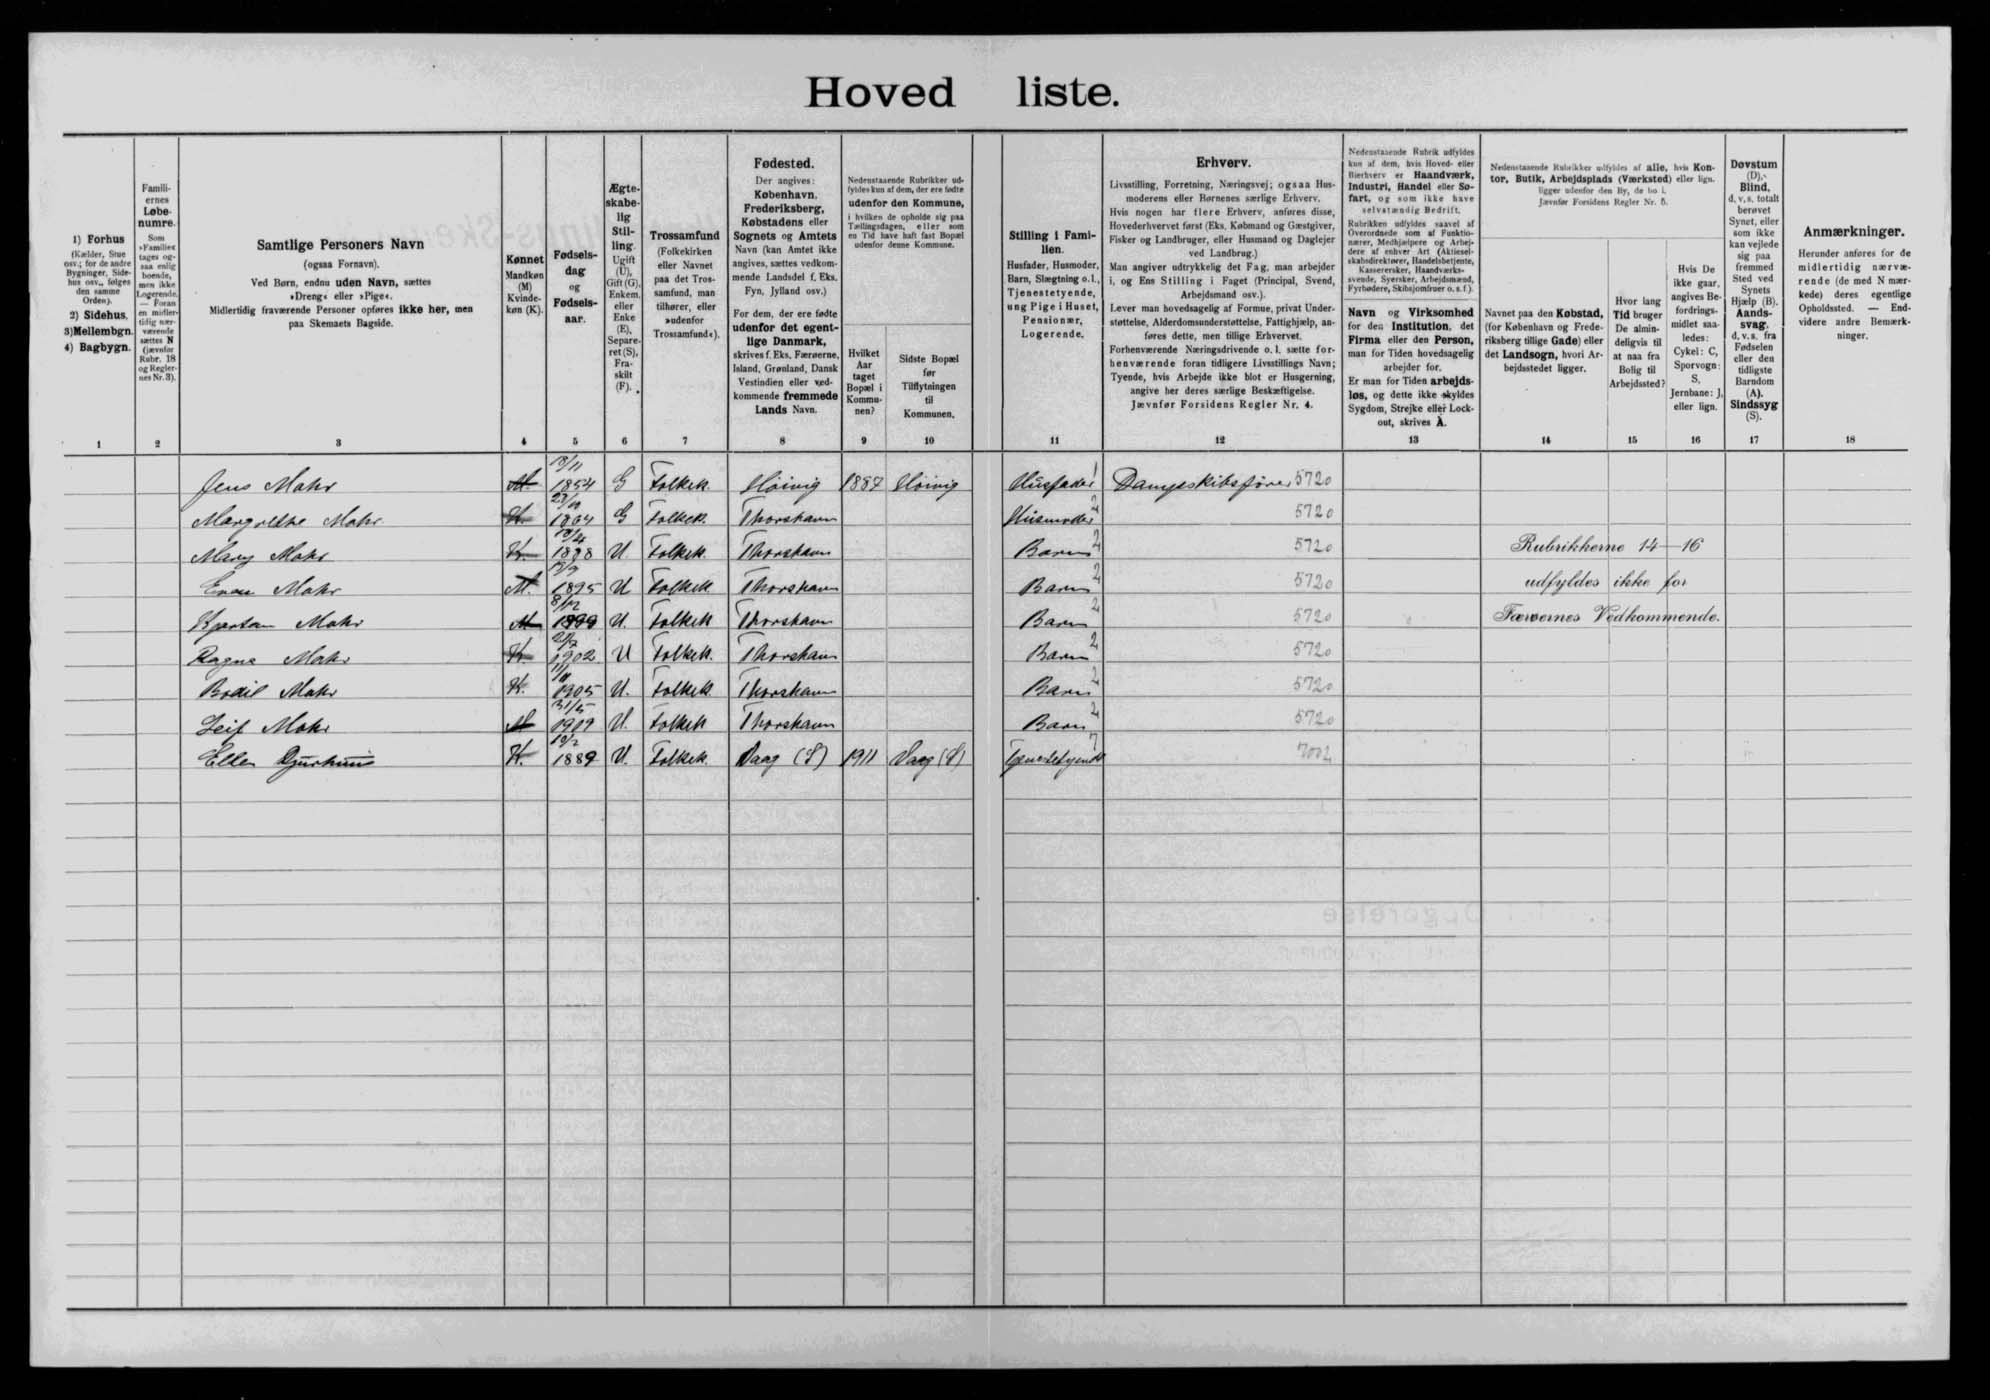 Hoved liste.
1) Forhus
(Kælder, Stue
osv.; for de andre
Bygninger, Side-
hus osv., følges
den samme
Orden).
2) Sidehus.
3) Mellembgn.
4) Bagbygn.
1
Famili-
ernes
Løbe-
numre.
Som
»Familie«
tages og-
saa enlig
boende,
men ikke
Logerende.
— Foran
en midler-
tidig nær-
værende
sættes N
(jævnfør
Rubr. 18
og Regler-
nes Nr. 3).
2
Samtlige Personers Navn
(ogsaa Fornavn).
Ved Børn, endnu uden Navn, sættes
»Dreng« eller »Pige«.
Midlertidig fraværende Personer opføres ikke her, men
paa Skemaets Bagside.
3
Kønnet
Mandkøn
(M)
Kvinde-
køn (K).
4
Fødsels-
dag
og
Fødsels-
aar.
5
Ægte-
skabe-
lig
Stil-
ling.
Ugift
(U),
Gift (G),
Enkem.
eller
Enke
(E),
Separe-
ret (S),
Fra-
skilt
(F).
6
Trossamfund
(Folkekirken
eller Navnet
paa det Tros-
samfund, man
tilhører, eller
»udenfor
Trossamfund«).
7
Fødested.
Der angives:
København,
Frederiksberg,
Købstadens eller
Sognets og Amtets
Navn (kan Amtet ikke
angives, sættes vedkom-
mende Landsdel f. Eks.
Fyn, Jylland osv.)
For dem, der ere fødte
udenfor det egent-
lige Danmark,
skrives f. Eks. Færøerne,
Island, Grønland, Dansk
Vestindien eller ved-
kommende fremmede
Lands Navn.
8
Nedenstaaende Rubrikker ud-
fyldes kun af dem, der ere fødte
udenfor den Kommune,
i hvilken de opholde sig paa
Tællingsdagen, eller som
en Tid have haft fast Bopæl
udenfor denne Kommune.
Hvilket
Aar
taget
Bopæl i
Kommu-
nen?
9
Sidste Bopæl
før
Tilflytningen
til
Kommunen.
10
Stilling i Fami-
lien.
Husfader, Husmoder,
Barn, Slægtning o.l.,
Tjenestetyende,
ung Pige i Huset,
Pensionær,
Logerende.
11
Erhverv.
Livsstilling, Forretning, Næringsvej; ogsaa Hus-
moderens eller Børnenes særlige Erhverv.
Hvis nogen har flere Erhverv, anføres disse,
Hovederhvervet først (Eks. Købmand og Gæstgiver,
Fisker og Landbruger, eller Husmand og Daglejer
ved Landbrug.)
Man angiver udtrykkelig det Fag, man arbejder
i, og Ens Stilling i Faget (Principal, Svend,
Arbejdsmand osv.).
Lever man hovedsagelig af Formue, privat Under-
støttelse, Alderdomsunderstøttelse, Fattighjælp, an-
føres dette, men tillige Erhvervet.
Forhenværende Næringsdrivende o. l. sætte for-
henværende foran tidligere Livsstillings Navn;
Tyende, hvis Arbejde ikke blot er Husgerning,
angive her deres særlige Beskæftigelse.
Jævnfør Forsidens Regler Nr. 4.
12
Nedenstaaende Rubrik udfyldes
kun af dem, hvis Hoved- eller
Bierhverv er Haandværk,
Industri, Handel eller Sø-
fart, og som ikke have
selvstændig Bedrift.
Rubrikken udfyldes saavel af
Overordnede som af Funktio-
nærer, Medhjælpere og Arbej-
dere af enhver Art (Aktiesel-
skabsdirektører, Handelsbetjente,
Kassererskер, Haandværks-
svende, Syersker, Arbejdsmænd,
Fyrbødere, Skibsjomfruer o. s. f.).
Navn og Virksomhed
for den Institution, det
Firma eller den Person,
man for Tiden hovedsagelig
arbejder for.
Er man for Tiden arbejds-
løs, og dette ikke skyldes
Sygdom, Strejke eller Lock-
out, skrives A.
13
Nedenstaaende Rubrikker udfyldes af alle, hvis Kon-
tor, Butik, Arbejdsplads (Værksted) eller lign.
ligger udenfor den By, de bo i.
Jævnfør Forsidens Regler Nr. 5.
Navnet paa den Købstad,
(for København og Frede-
riksberg tillige Gade) eller
det Landsogn, hvori Ar-
bejdsstedet ligger.
14
Hvor lang
Tid bruger
De almin-
deligvis til
at naa fra
Bolig til
Arbejdssted?
15
Hvis De
ikke gaar,
angives Be-
fordrings-
midlet saa-
ledes:
Cykel: C,
Sporvogn:
S,
Jernbane: J,
eller lign.
16
Døvstum
(D),
Blind,
d. v. s. totalt
berøvet
Synet, eller
som ikke
kan vejlede
sig paa
fremmed
Sted ved
Synets
Hjælp (B).
Aands-
svag,
d. v. s. fra
Fødselen
eller den
tidligste
Barndom
(A).
Sindssyg
(S).
17
Anmærkninger.
Herunder anføres for de
midlertidig nærvæ-
rende (de med N mær-
kede) deres egentlige
Opholdssted. — End-
videre andre Bemærk-
ninger.
18
Jens Mohr M. 1854 G Folkek. Hoivig 1887 Hoivig Husfader 1 Dampskibsfører 5720
Margrethe Mohr K. 1864 G Folkek. Thorshavn Husmoder 2 5720
Mary Mohr K. 1888 U. Folkek. Thorshavn Barn 2 5720 Rubrikkerne 14—16
Mohr M. 1895 U Folkek. Thorshavn Barn 2 5720 udfyldes ikke for
Kjartan Mohr M 8/12 1899 U. Folkek Thorshavn Barn 2 5720 Færøernes Vedkommende.
Ragna Mohr K 1902 U Folkek. Thorshavn Barn 2 5720
Bodil Mohr K. 1905 U. Folkek Thorshavn Barn 2 5720
Leif Mohr M 31/5 1909 U. Folkek Thorshavn Barn 2 5720
Ellen Djurhuus K. 1889 U. Folkek. Vaag (S) 1911 Vaag (S) Tjenestetyende 7 7002